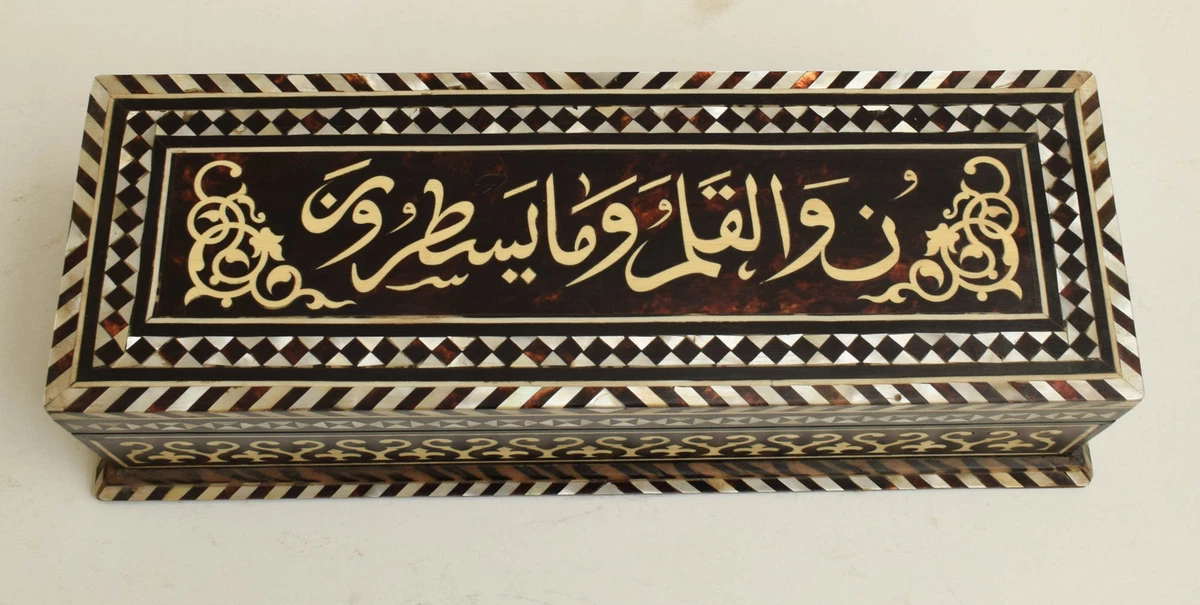 ن وَالقَلَمُ وَمَا يَسطُرُونَ